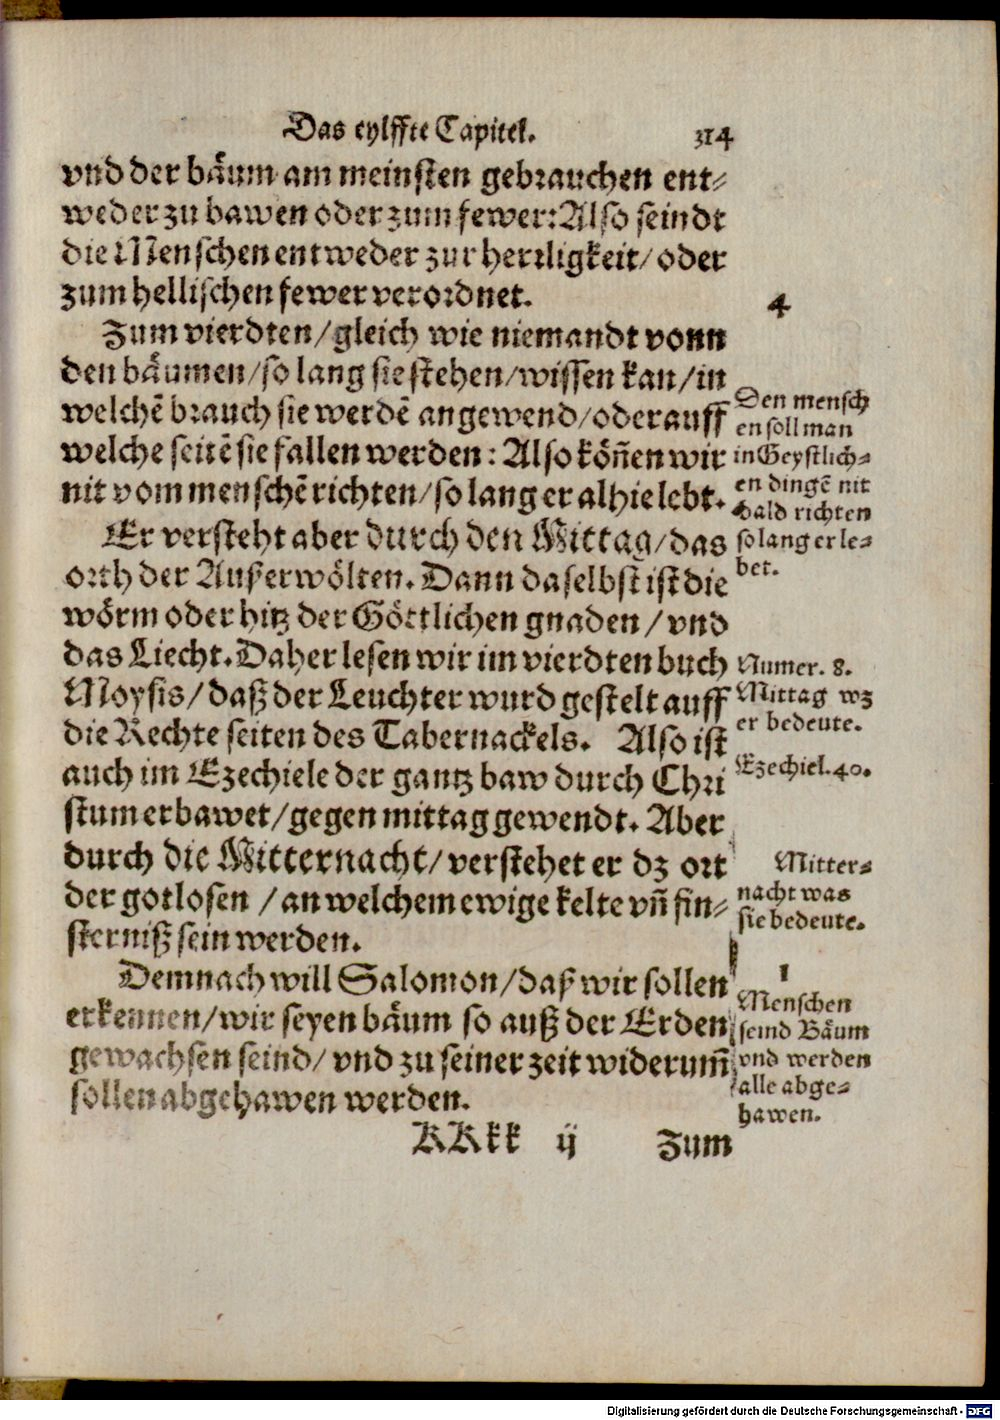 Das eylffte Capitel. 314
vnd der bäum am meinsten gebrauchen ent⸗
weder zu bawen oder zum fewer: Also seindt
die Menschen entweder zur herrligkeit/ oder
zum hellischen fewer verordnet.
4
Zum vierdten/ gleich wie niemandt vonn
den bäumen/ so lang sie stehen/ wissen kan/ in
welchẽ brauch sie werdẽ angewend/ oder auff
welche seitẽ sie fallen werden: Also köñen wir
nit vom menschẽ richten/ so lang er alhie lebt.
Den mensch
en soll man
in Geystlich⸗
en dingẽ nit
bald richten
so lang er le⸗
bet.
Er versteht aber durch den Mittag/ das
orth der Außerwölten. Dann daselbst ist die
wörm oder hitz der Göttlichen gnaden / vnd
das Liecht. Daher lesen wir im vierdten buch
Moysis/ daß der Leuchter wurd gestelt auff
die Rechte seiten des Tabernackels. Also ist
auch im Ezechiele der gantz baw durch Chri
stum erbawet/ gegen mittag gewendt. Aber
durch die Mitternacht/ verstehet er dz ort
der gotlosen / an welchem ewige kelte vñ fin⸗
sterniß sein werden.
Numer. 8.
Mittag wz
er bedeute.
Ezechiel. 40.
Mitter⸗
nacht was
sie bedeute.
Demnach will Salomon/ daß wir sollen
erkennen/ wir seyen bäum so auß der Erden
gewachsen seind/ vnd zu seiner zeit widerum̃
sollen abgehawen werden.
1
Menschen
seind Bäum
vnd werden
alle abge⸗
hawen.
KKkk ij Zum
Digitalisierung gefördert durch die Deutsche Forschungsgemeinschaft - DFG